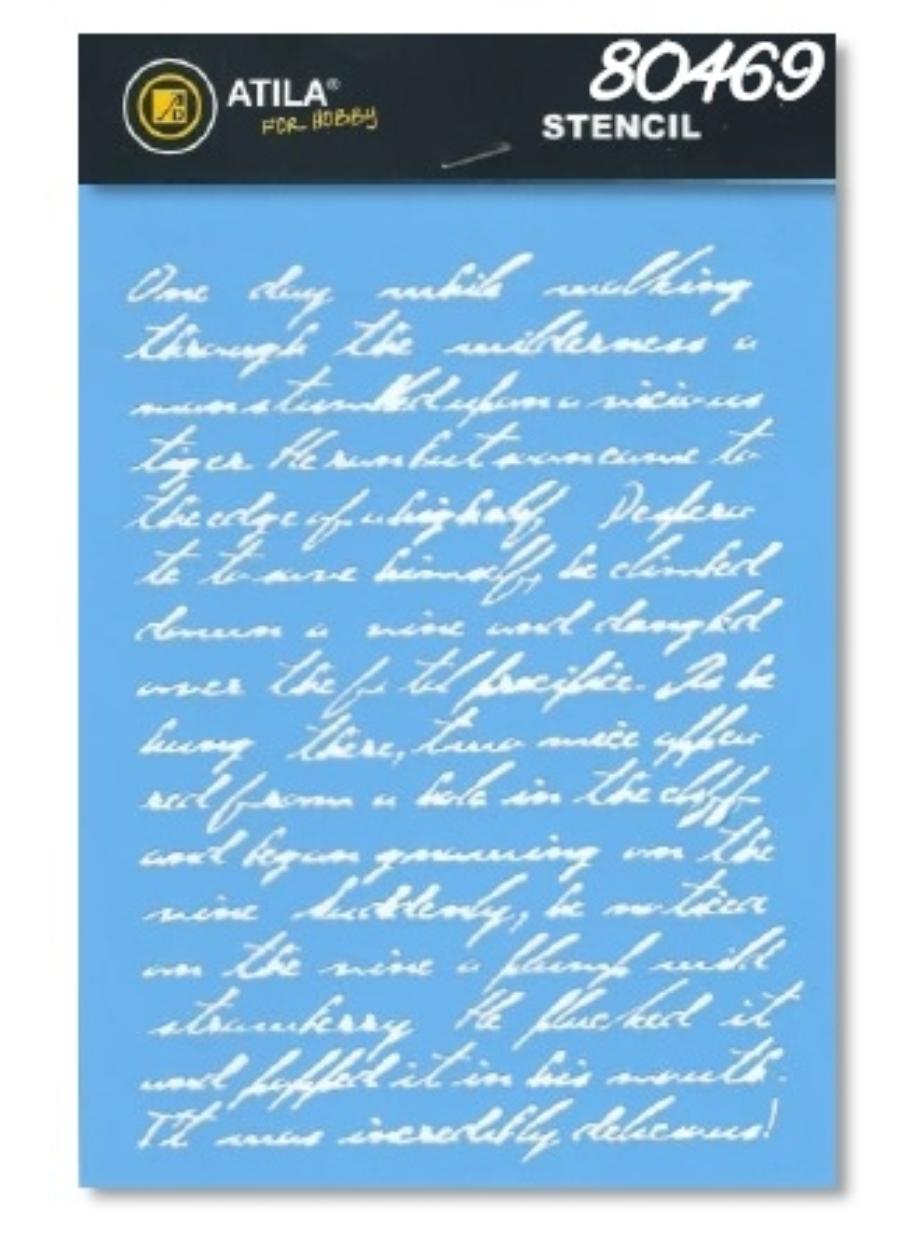 ATILA®
FOR HOBBY
80469
STENCIL
One day while walking
through the wilderness a
man stumbled upon a vicious
tiger. He ran but soon came to
the edge of a high
Despera
te to save himself, he climbed
down a vine and dangled
over the fatal precipice. As he
hung there, two mice appea
red from a hole in the cliff
and began gnawing on the
vine Suddenly, he noticed
on the vine a plump wild
strawberry He plucked it
and popped it in his mouth.
It was incredibly delicious!